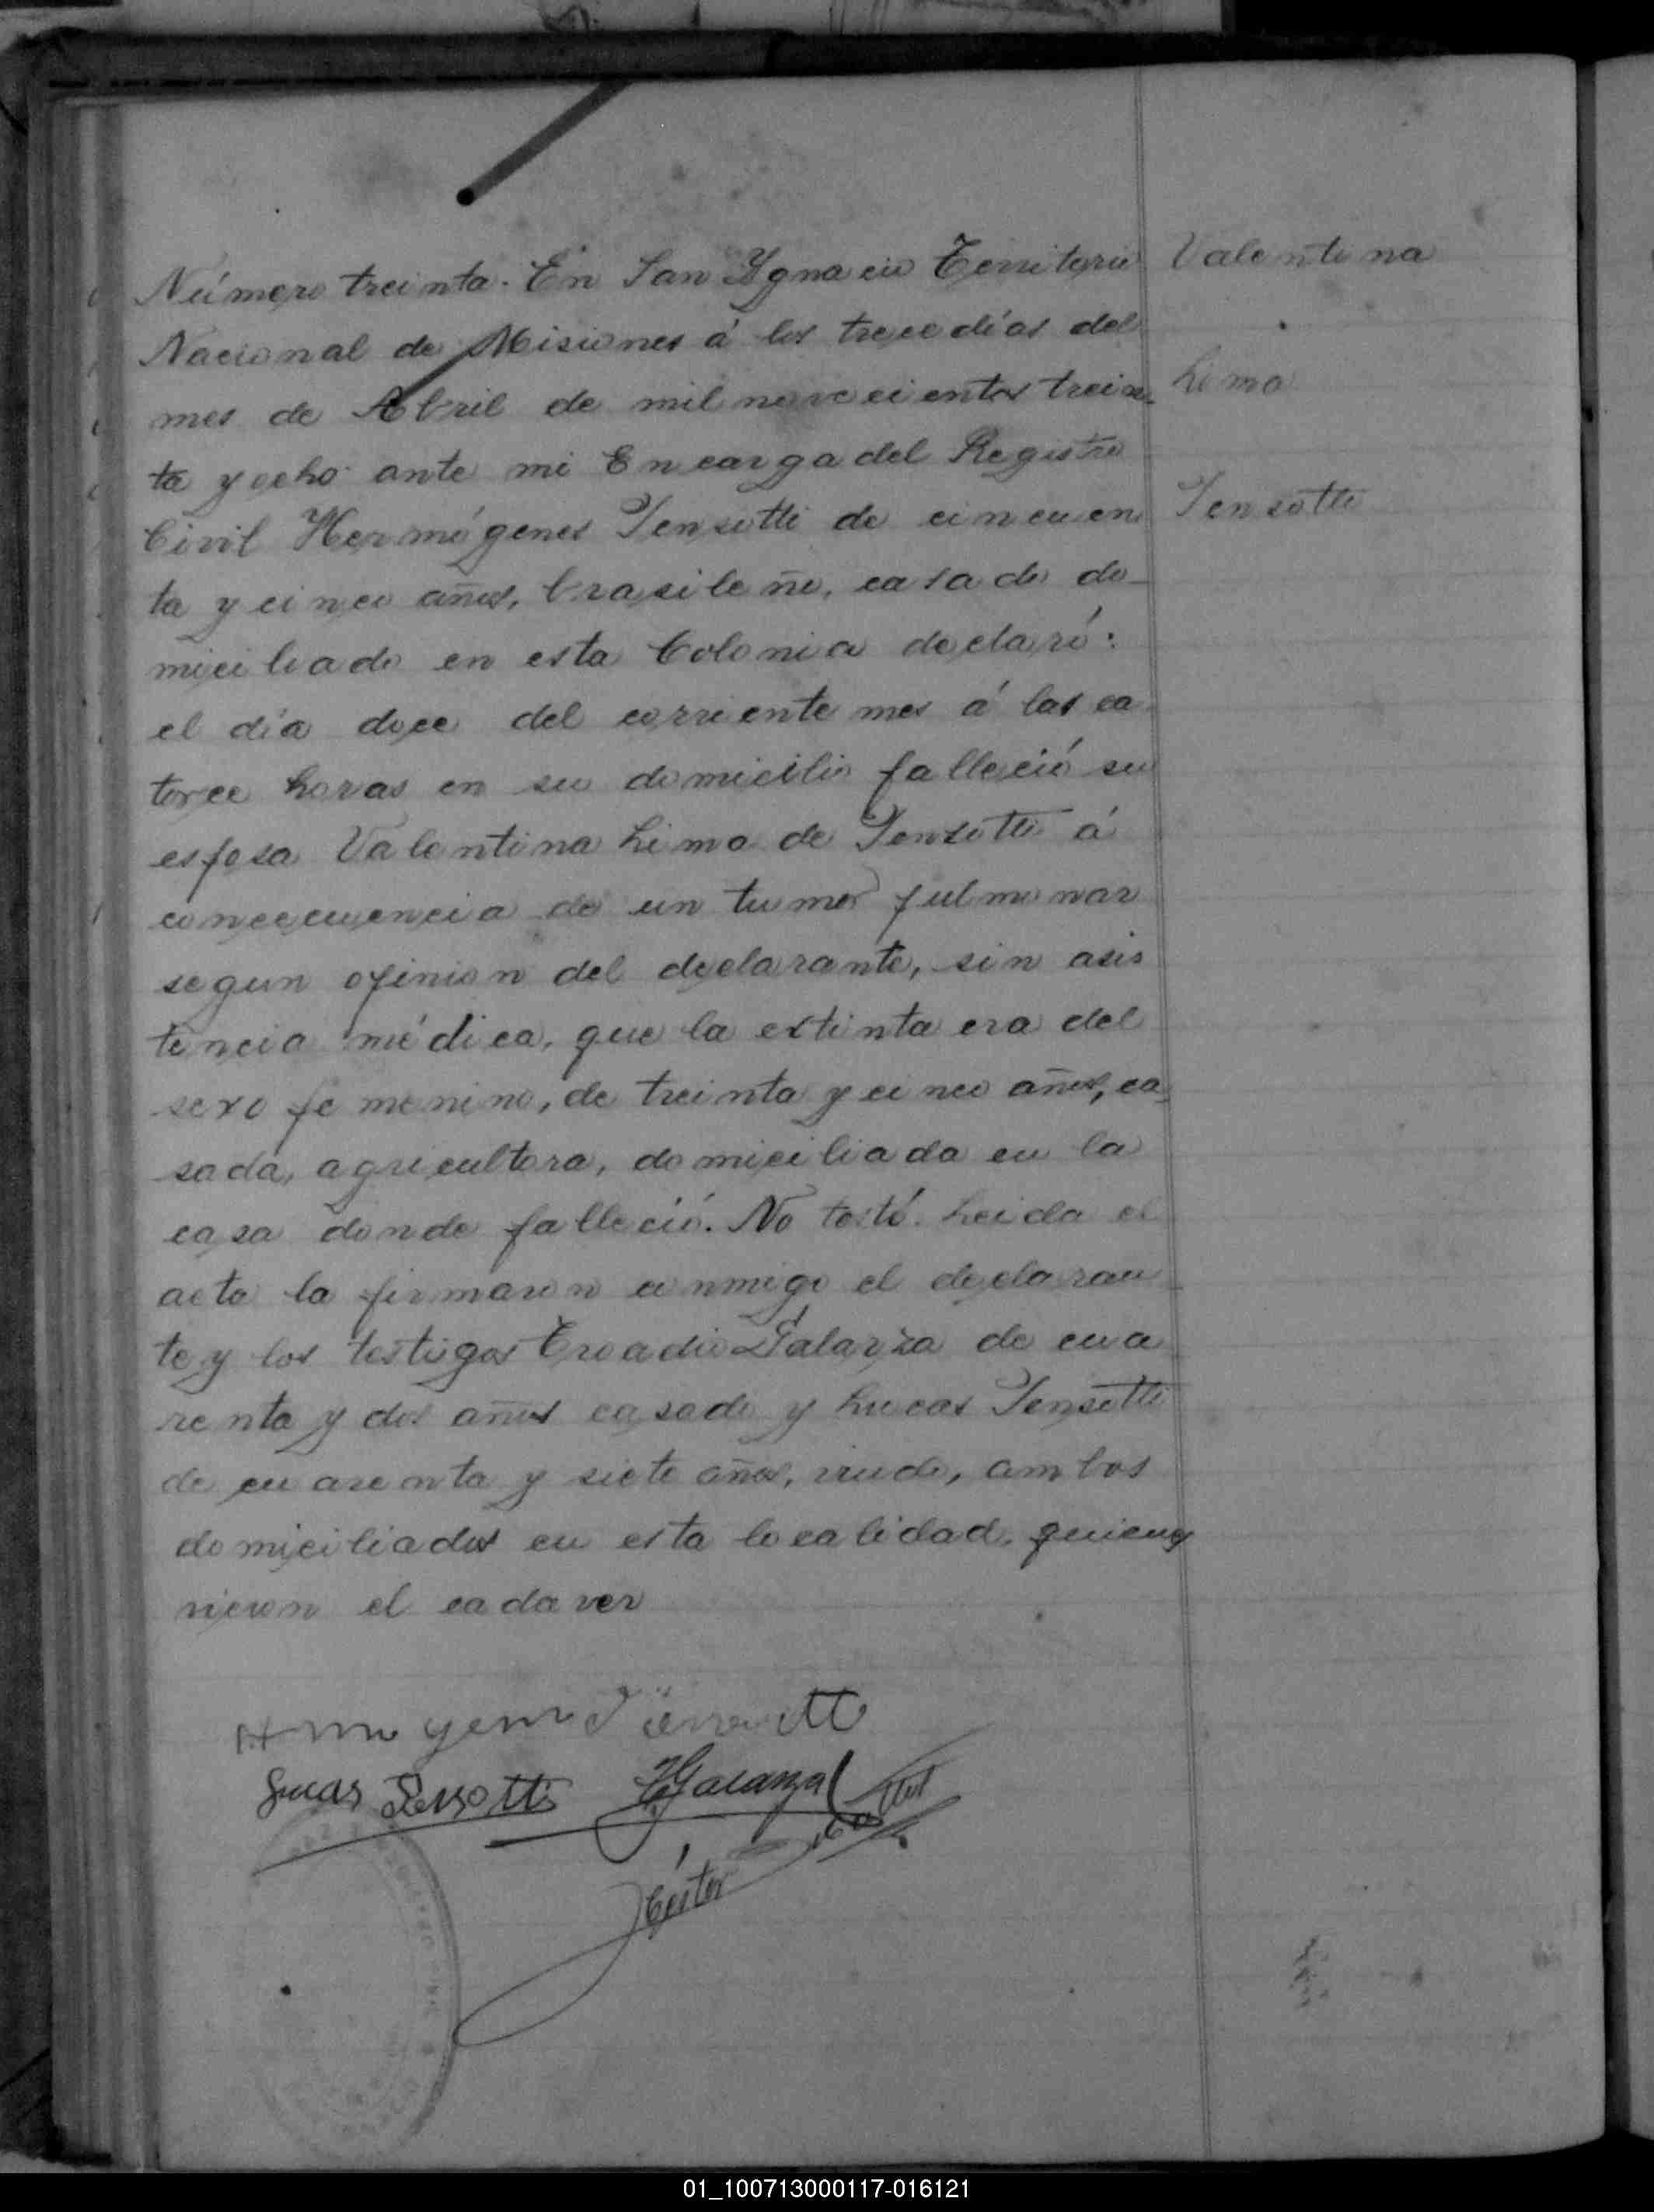 Número treinta. En San Ygnacio Territorio
Nacional de Misiones á los trece días del
mes de Abril de mil novecientos trein_
ta y ocho ante mi Encargadel Registro
Civil Hermógenes Tensotti de cincuen
ta y cinco años, brasileño, casado do_
miciliado en esta Colonia declaró:
el día doce del corriente mes á las ca
torce horas en su domicilio falleció su
esposa Valentina Lima de Tensotti á
concecuencia de un tumor pulmonar
segun opinion del declarante, sin asis
tencia médica, que la extinta era del
sexo femenino, de treinta y cinco años, ca_
sada, agricultora, domiciliada en la
casa donde falleció. No testó. Leida el
acta la firmaron conmigo el declaran_
te y los testigos Eroadio Galarza de cua
renta y dos años casado y Lucas Tensotti
de cuarenta y siete años, viudo, ambos
domiciliados en esta localidad, quienes
vieron el cadaver
Valentina
Lima
Tensotti
Lucas Tensotti
Galarza
Héctor
01_100713000117-016121